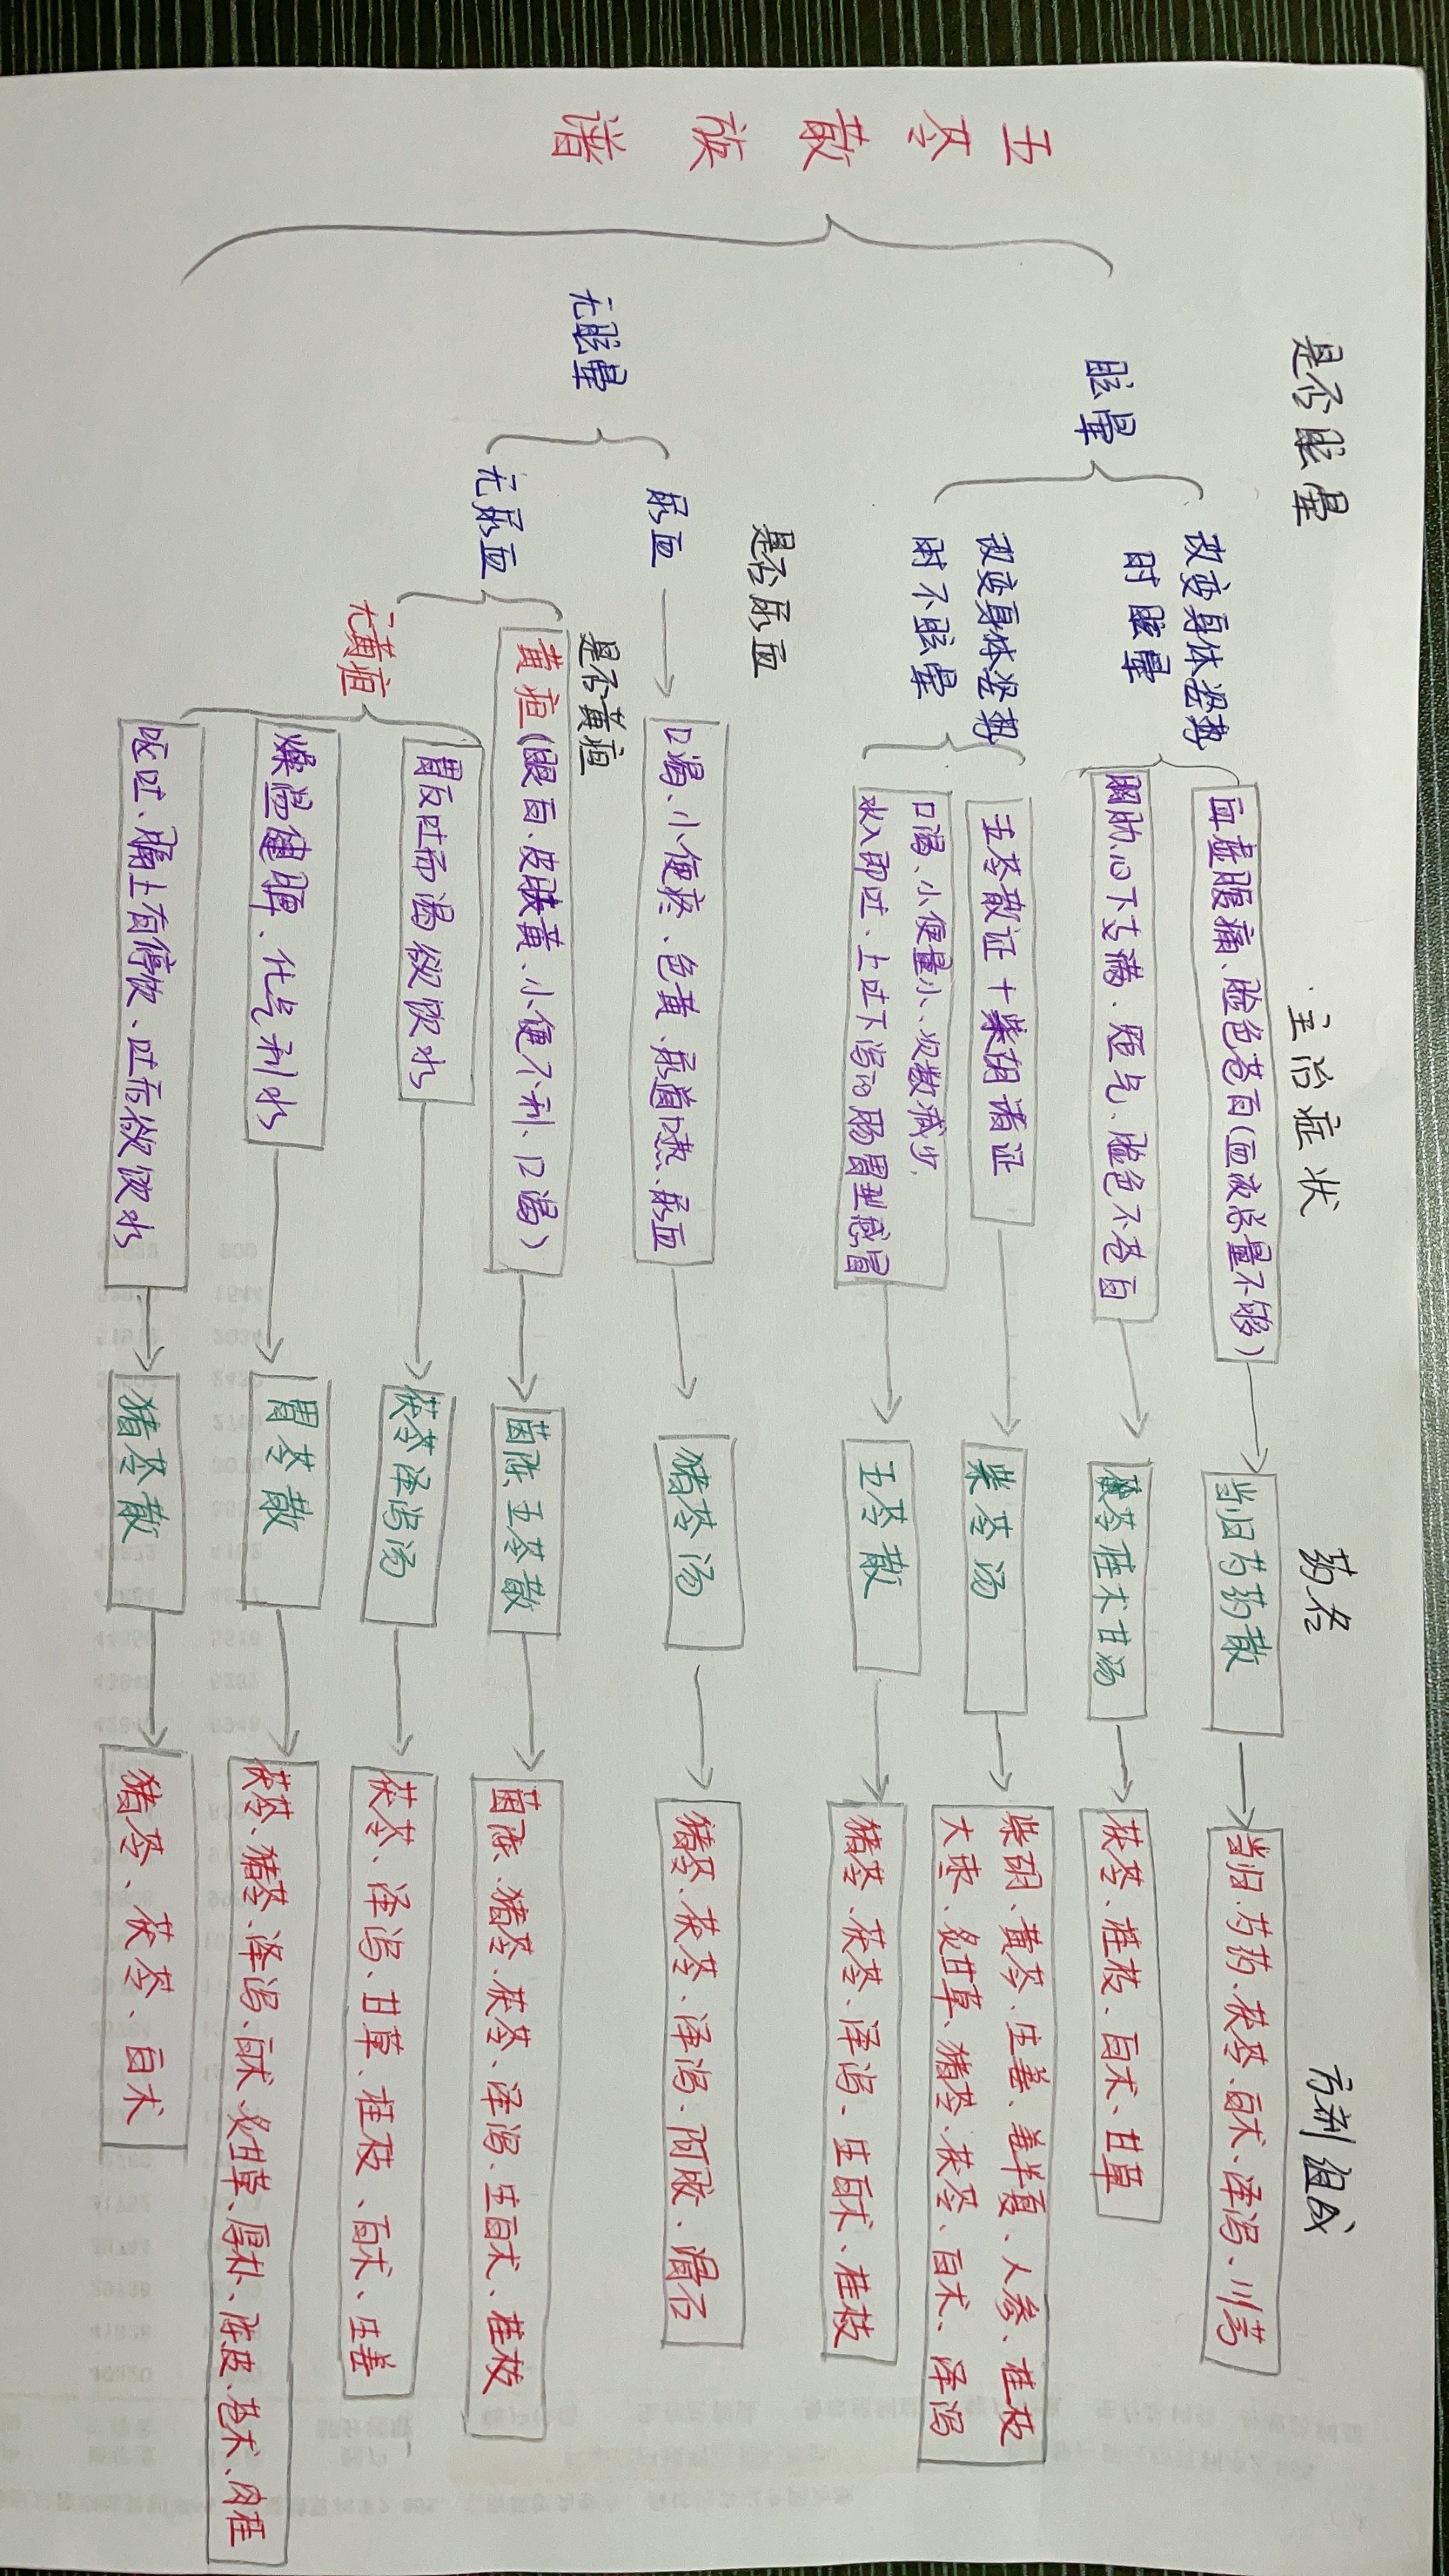 五苓散族谱
是否眩晕
主治症状
药名
方剂组成
眩晕
改变身体姿势
时眩晕
血虚腹痛、脸色苍白(血液总量不够)
当归芍药散
当归、芍药、茯苓、白术、泽泻、川芎
胸胁、心下支满、短气、脸色不苍白
茯苓桂术甘汤
茯苓、桂枝、白术、甘草
改变身体姿势
时不眩晕
五苓散证+柴胡诸证
柴苓汤
柴胡、黄芩、生姜、姜半夏、人参、桂枝
大枣、炙甘草、猪苓、茯苓、白术、泽泻
口渴、小便量小、次数减少、
水入即吐、上吐下泻的肠胃型感冒
五苓散
猪苓、茯苓、泽泻、生白术、桂枝
是否尿血
无眩晕
尿血
口渴、小便疼、色黄、尿道口热、尿血
猪苓汤
猪苓、茯苓、泽泻、阿胶、滑石
无尿血
是否黄疸
黄疸(眼白、皮肤黄、小便不利、口渴)
茵陈五苓散
茵陈、猪苓、茯苓、泽泻、生白术、桂枝
无黄疸
胃反吐而渴欲饮水
茯苓泽泻汤
茯苓、泽泻、甘草、桂枝、白术、生姜
燥湿健脾、化气利水
胃苓散
茯苓、猪苓、泽泻、白术、炙甘草、厚朴、陈皮、苍术、肉桂
呕吐、膈上有停饮、吐后欲饮水
猪苓散
猪苓、茯苓、白术